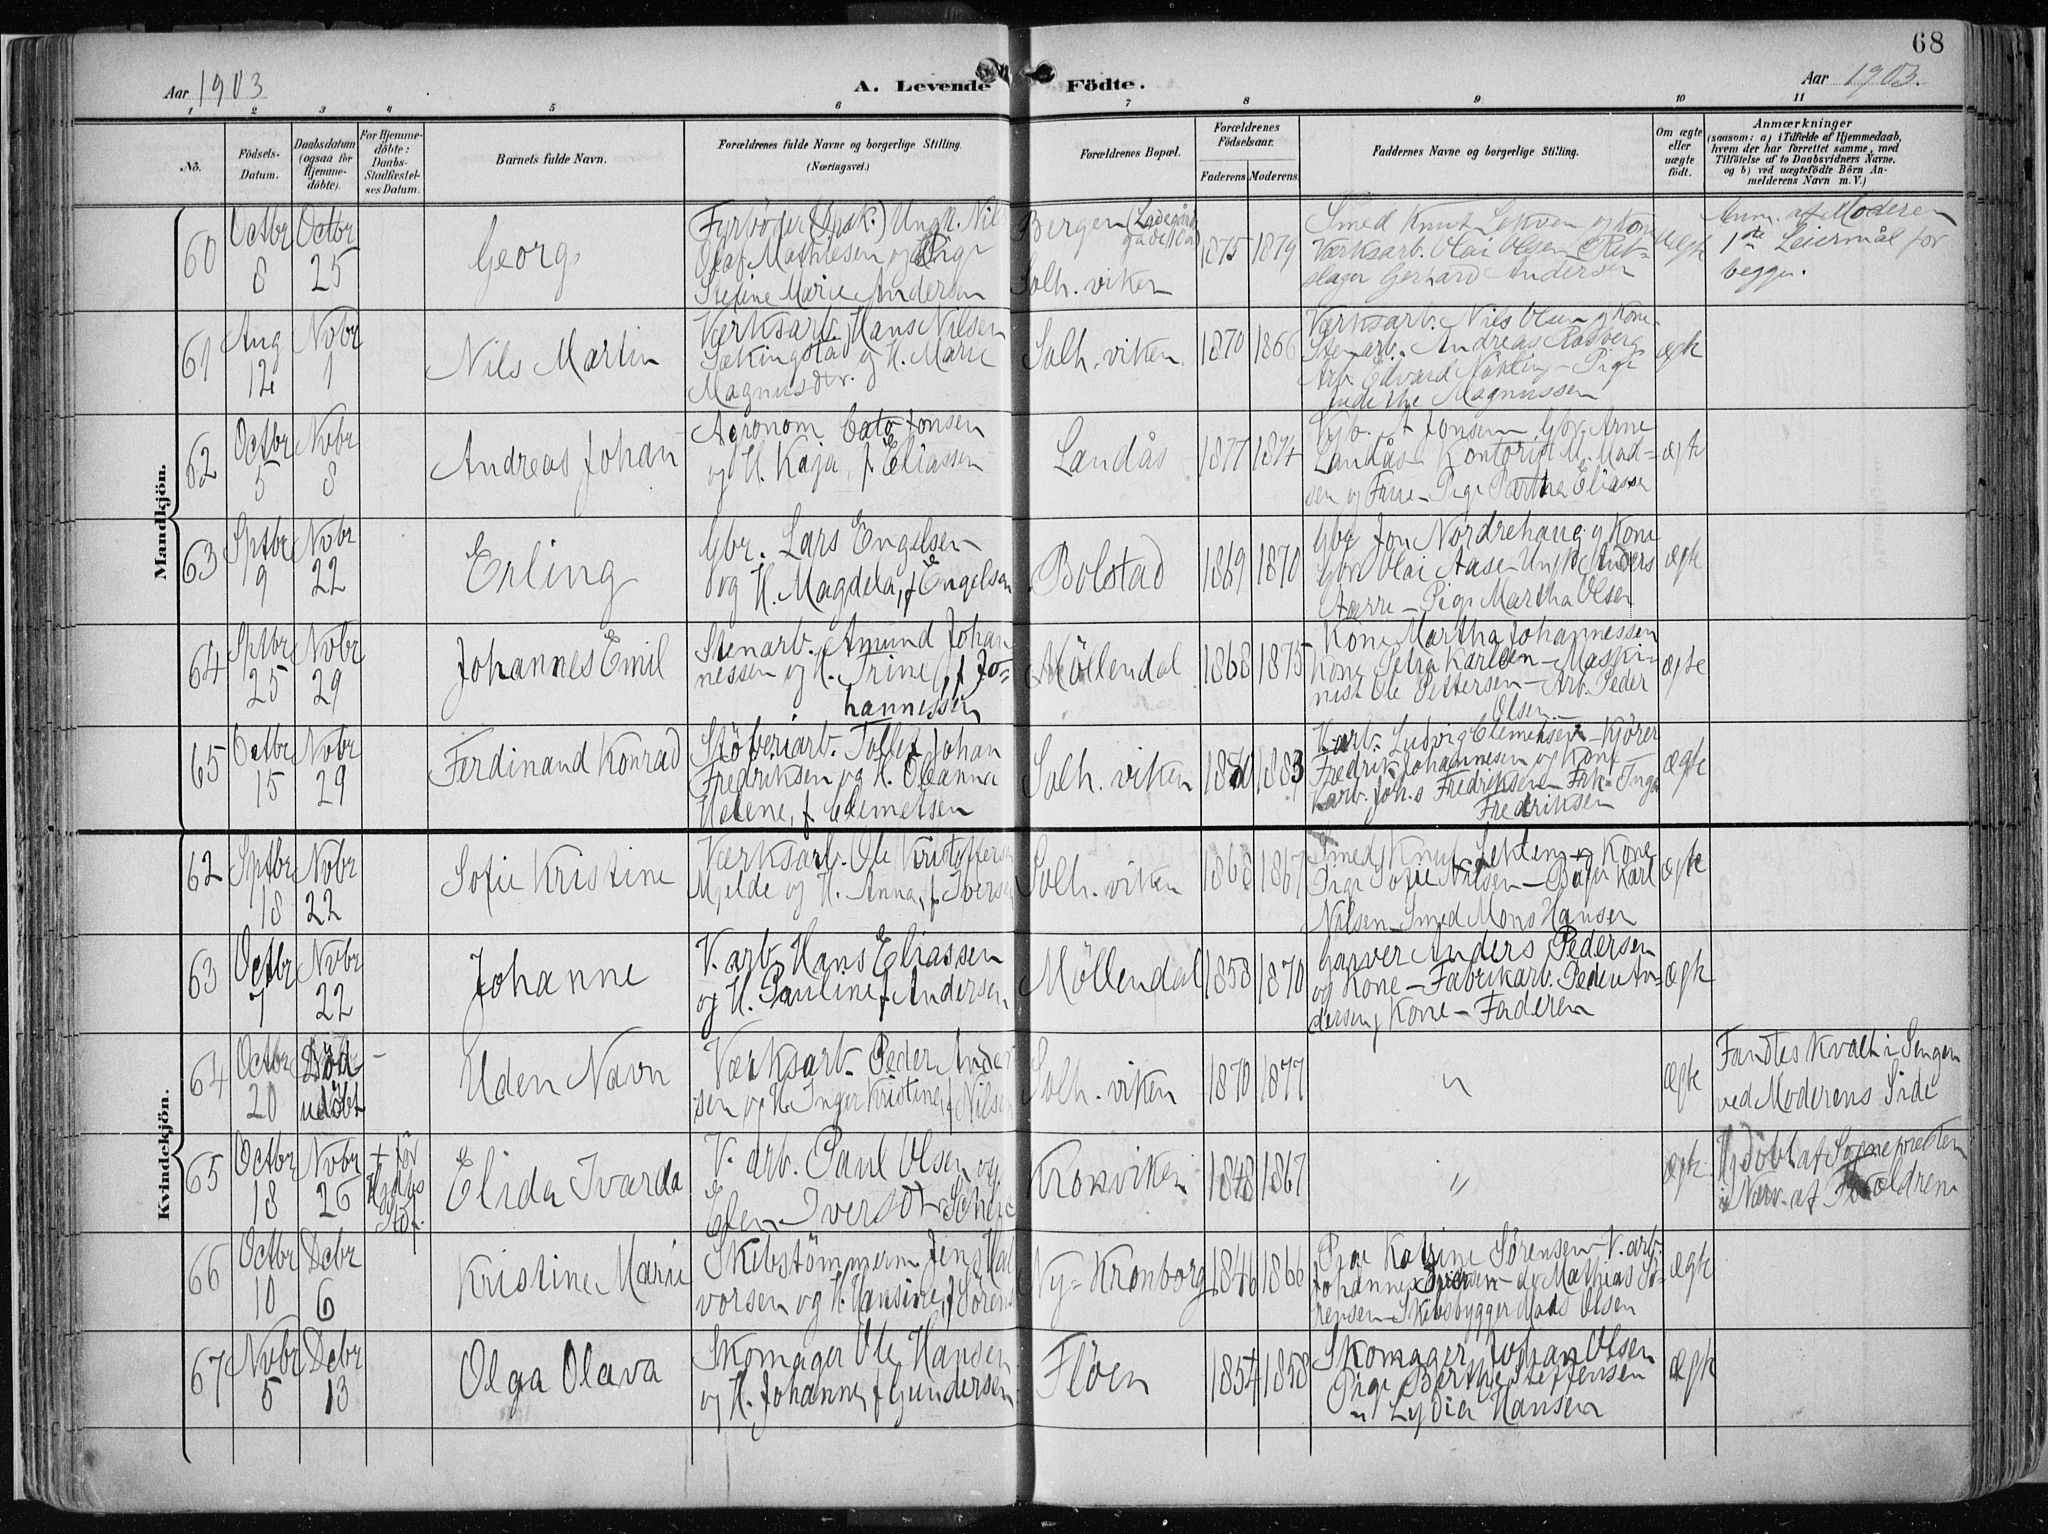 68
Aar 1903
A. Levende Födte.
Aar 1903.
1 2 3 4 5 6 7 8 9 10 11
No.
Födsels-
Datum.
Daabsdatum
(ogsaa for
Hjemme-
döbte).
For Hjemme-
döbte:
Daabs-
Stadfæstel-
ses Datum.
Barnets fulde Navn.
Forældrenes fulde Navne og borgerlige Stilling.
(Næringsvei.)
Forældrenes Bopæl.
Forældrenes
Födselsaar.
Faderens Moderens.
Faddernes Navne og borgerlige Stilling.
Om ægte
eller
uægte
födt.
Anmærkninger
(saasom: a) i Tilfælde af Hjemmedaab,
hvem der har forrettet samme, med
Tilföielse af to Daabsvidners Navne,
og b) ved uægtefödte Börn An-
melderens Navn m. V.)
Mandkjön.
60
Octbr
8
Octbr
25
Georg
Fyrböder Ungk. Nil
Olaf Mathiesen og Pige
Stefine Marie Andersen
Bergen
Solh. viken
1875
1879
Smed Knut Lekven og Kone
Værksarb. Olai Olsen
slager Gerhard Andersen
Uegte
Anm. af Moderen
1ste Leiermål for
begge.
61
Aug
12
Novbr
1
Nils Martin
Værksarb. Hans Nilsen
og H. Marie
Magnusdtr.
Solh. viken
1870
1866
Værksarb. Nils Olsen og Kone
Stenarb. Andreas
Arb. Edvard Pige
Magnussen
ægte
62
Octbr
5
Novbr
8
Andreas Johan
Agronom Cato Jonsen
og H. Kaja, f. Eliassen
Landås
1877
1874
Jonsen Gbr. Arne
Landås Kontorist M. Mad-
sen og Frue – Pige Eliassen
ægte
63
Sptbr
9
Novbr
22
Erling
Gbr. Lars Engelsen
og H. Magdela, f. Engelsen
Bolstad
1869
1870
Gbr Jon Nordrehaug og Kone
Gbr Olai Aase Ungk. Anders
– Pige Martha Olsen
ægte
64
Sptbr
25
Novbr
29
Johannes Emil
Stenarb. Amund Johan
nessen og H. Trine, f. Jo=
hannessen
Möllendal
1868
1875
Kone Martha Johannessen
Kone Petra Karlsen – Maski-
nist Ole Pettersen – Arb. Peder
Olsen
ægte
65
Octbr
15
Novbr
29
Ferdinand Konrad
Stöberiarb. Tollef Johan
Fredriksen og H. Oleanna
Helene, f. Clemetsen
Solh. viken
1883
V. arb. Ludvig Clemetsen – Kjörer
Fredrik Johannesen og Kone
V. arb. Johs Fredriksen – Frk. Inga
Fredriksen
ægte
Kvindekjön.
62
Sptbr
18
Novbr
22
Sofie Kristine
Værksarb. Ole Kristoffersen
Mjelde og H. Anna, f. Iversen
Solh. viken
1868
1867
Smed Knut og Kone
Pige Sofie Nilsen – Karl
Nilsen – Smed Mons Hansen
ægte
63
Octbr
7
Novbr
22
Johanne
V. arb. Hans Eliassen
og H. Pauline f. Andersen
Möllendal
1858
1870
Garver Anders Pedersen
og Kone – Fabrikarb. Peder An-
dersen, Kone – Faderen
ægte
64
Octbr
20
Död
udöbt
–
Uden Navn
Værksarb. Peder Ander
sen og H. Inger Kristine, f. Nilsen
Solh. viken
1870
1877
"
ægte
Fandtes kvalt i Sengen
ved Moderens Side
65
Octbr
18
Novbr
26
+ för
Elida Ivarda
V. arb. Paul Olsen og
Elen Iversdtr
Kronviken
1848
1867
"
ægte
Hjdöbt af Sognepresten
i Nærv. af Forældrene
66
Octbr
10
Dcbr
6
Kristine Marie
Skibstömmerm. Jens Hal
vorsen og H. Hansine, f. Sörens
Ny=Kronborg
1846
1866
Pige Katrine Sörensen – V. arb.
Johannes Iversen – do Mathias Sö-
rensen – Skibsbygger Mads Olsen
ægte
67
Novbr
5
Dcbr
13
Olga Olava
Skomager Ole Hansen
og H. Johanne f Gundersen
Flöen
1854
1858
Skomager Johan Olsen
Pige Berthe Steffensen
" Lydia Hansen
ægte